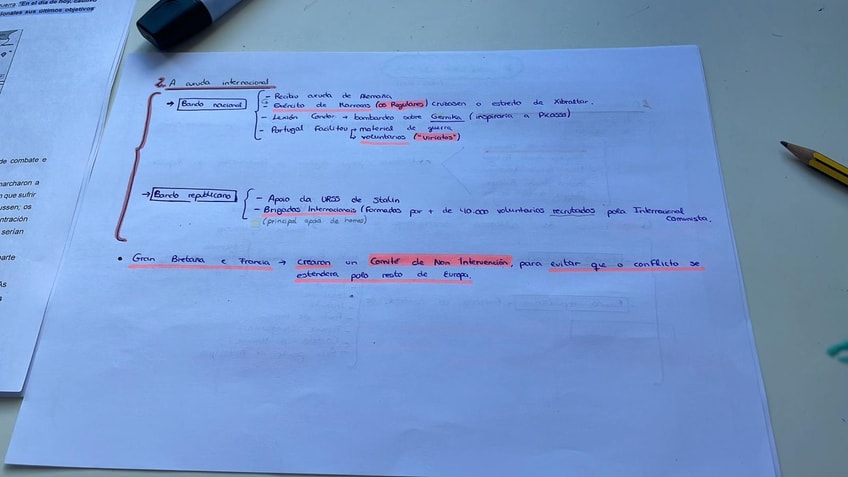 guerra "En el día de hoy, cautivo
ionales sus últimos objetivos
2. A axuda internacional
→ Bando nacional
- Recibiu axuda de Alemaña
Exército de Marrocos (os Regulares) cruzasen o estreito de Xibraltar.
- Lexión Condor → bombardeo sobre Gernika (inspiraría a Picasso)
- Portugal facilitou material de guerra
voluntarios ("Viriatos")
→ Bando republicano
- Apoio da URSS de Stalin
- Brigadas Internacionais (formadas por + de 40.000 voluntarios recrutados pola Internacional Comunista.
(principal apoio de homes)
• Gran Bretaña e Francia → crearon un Comité de Non Intervención, para evitar que o conflicto se
estendera polo resto de Europa.
de combate e
marcharon a
n que sufrir
ussen; os
ntración
serían
parte
As
s